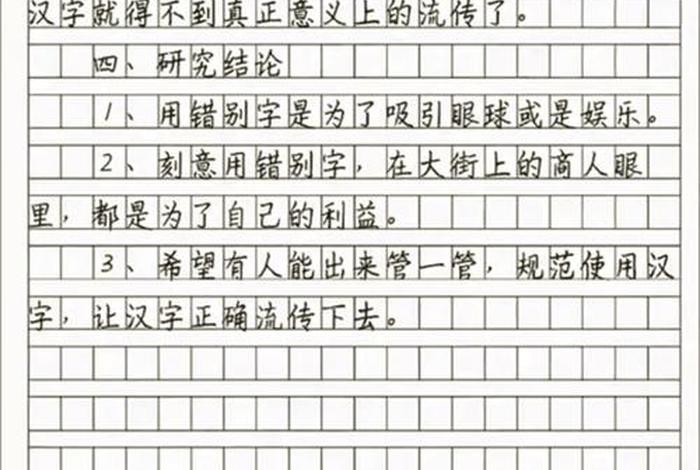 汉字就得不到真正意义上的流传了。
四、研究结论
1、用错别字是为了吸引眼球或是娱乐。
2、刻意用错别字，在大街上的商人眼
里，都是为了自己的利益。
3、希望有人能出来管一管，规范使用汉
字，让汉字正确流传下去。